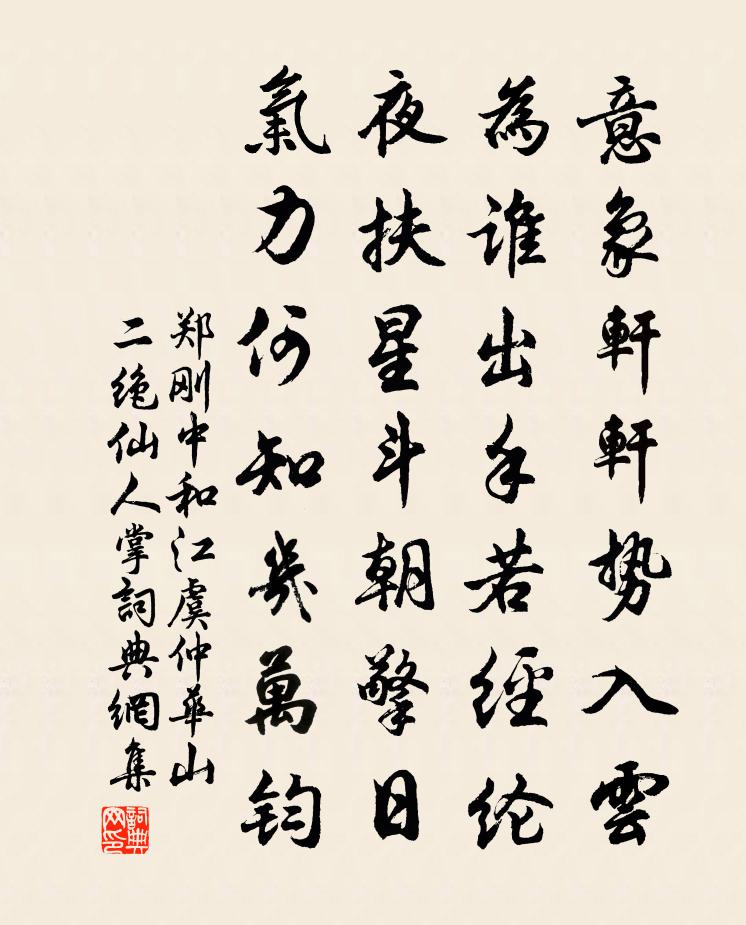 意象軒軒勢入雲
為誰出手若經纶
夜扶星斗朝擎日
氣力何知幾萬钧
郑刚中和江虞仲華山
二绝仙人掌詞典網集
詞典
网印